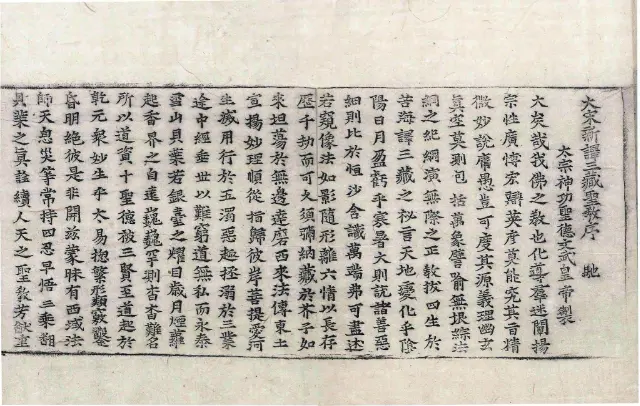 大宋新譯三藏聖教序　馳
大宗神功聖德文武皇帝製
大矣哉我佛之教也化導群迷闡揚
宗性廣博宏辯英彥莫能究其旨精
微妙說庸愚豈可度其源義理幽玄
真空莫測包括萬象譬喻無垠綜法
網之紀綱演無際之正教拔四生於
苦海譯三藏之秘言天地變化乎陰
陽日月盈虧乎寒暑大則說諸善惡
細則比於恒沙含識萬端弗可盡述
若窺像法如影隨形離六情以長存
歷千劫而可久須彌納藏於芥子如
來坦蕩於無邊達磨西來法傳東土
宣揚妙理順從指歸彼岸菩提愛河
生滅用行於五濁惡趣拯溺於三業
途中經垂世以難窮道無私而永泰
雪山貝葉若銀臺之耀目歲月煙蘿
起香界之自遠巍巍罕測杳杳難名
所以道資十聖德被三賢至道起於
乾元衆妙生乎太易揔繁形類竅鑿
昏明絕彼是非開茲蒙昧有西域法
師天息災等常持四忍早悟三乘翻
貝葉之真詮續人天之聖教芳猷重